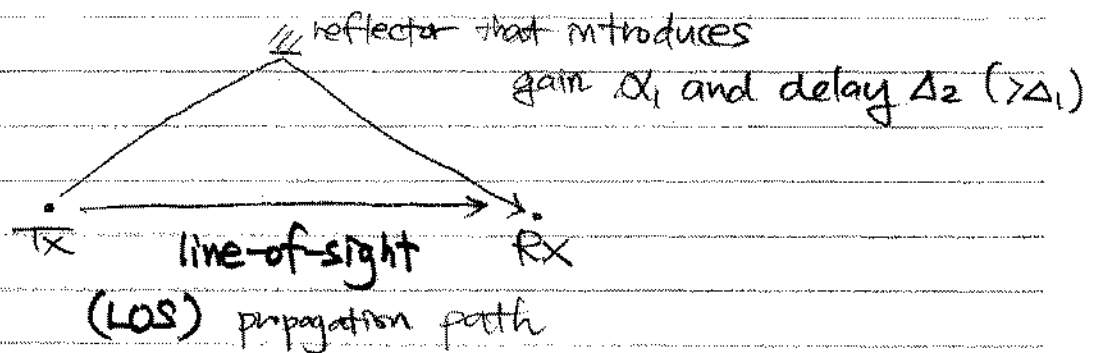 reflector that introduces
gain α₁ and delay Δ₂ (>Δ₁)
Tx
line-of-sight
Rx
(LOS) propagation path